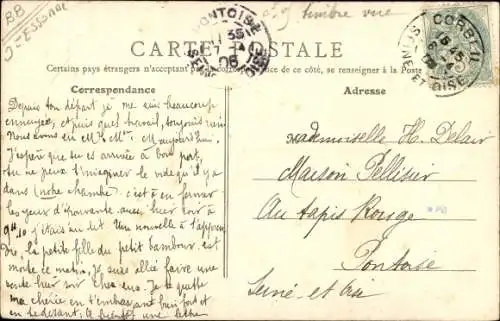 BB
S-ESSONNE
timbre vue
PONTOISE
35
06
CORBEIL
15 45
SEINE-ET-OISE
CARTE POSTALE
Certains pays étrangers n'acceptant pas de ce côté, se renseigner à la Poste
Correspondance
Adresse
Depuis ton départ je me suis beaucoup
ennuyée, et puis quel travail, toujours rien
Nous avons eu Mr Mme M aujourd'hui.
J'espère que tu es arrivée à bon port,
tu ne peux t'imaginer le vide qu'il y a
dans (notre chambre) c'est à en fermer
les yeux d'épouvante aussi hier soir à
9h 10 j'étais au lit. Une nouvelle à t'appren
dre, la petite fille du petit tambour est
morte ce matin. Je suis allée faire une
vente hier soir chez eux. Je te quitte
ma chérie en t'embrassant bien fort et
en te disant: A bientôt une lettre
Mademoiselle H. Delair
Maison Pellisier
Au tapis Rouge
Pontoise
Seine-et-Oise